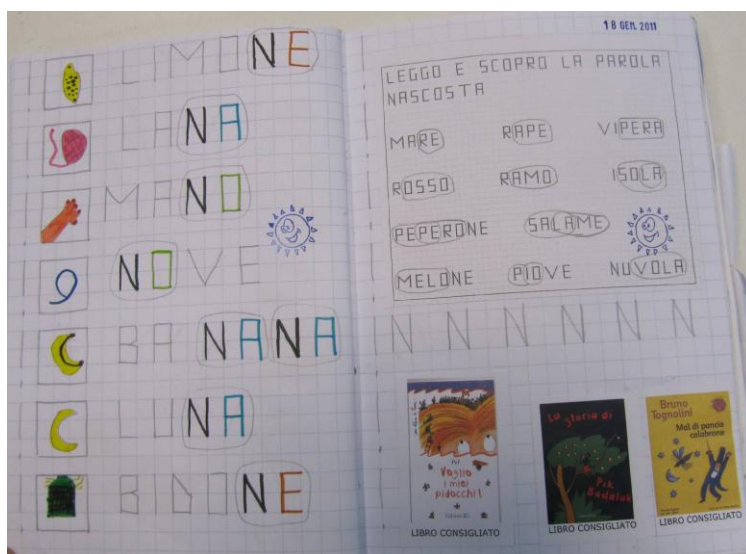 LIMONE
LANA
MANO
9 NOVE
BANANA
LUNA
BIDONE
18 GEN. 2011
LEGGO E SCOPRO LA PAROLA
NASCOSTA
MARE RAPE VIPERA
ROSSO RAMO ISOLA
PEPERONE SALAME
MELONE PIOVE NUVOLA
N N N N N N
Pef
Voglio
i miei
pidocchi!
LIBRO CONSIGLIATO
La storia di
Pik
Badaluk
LIBRO CONSIGLIATO
Bruno
Tognolini
Mal di pancia
calabrone
LIBRO CONSIGLIATO